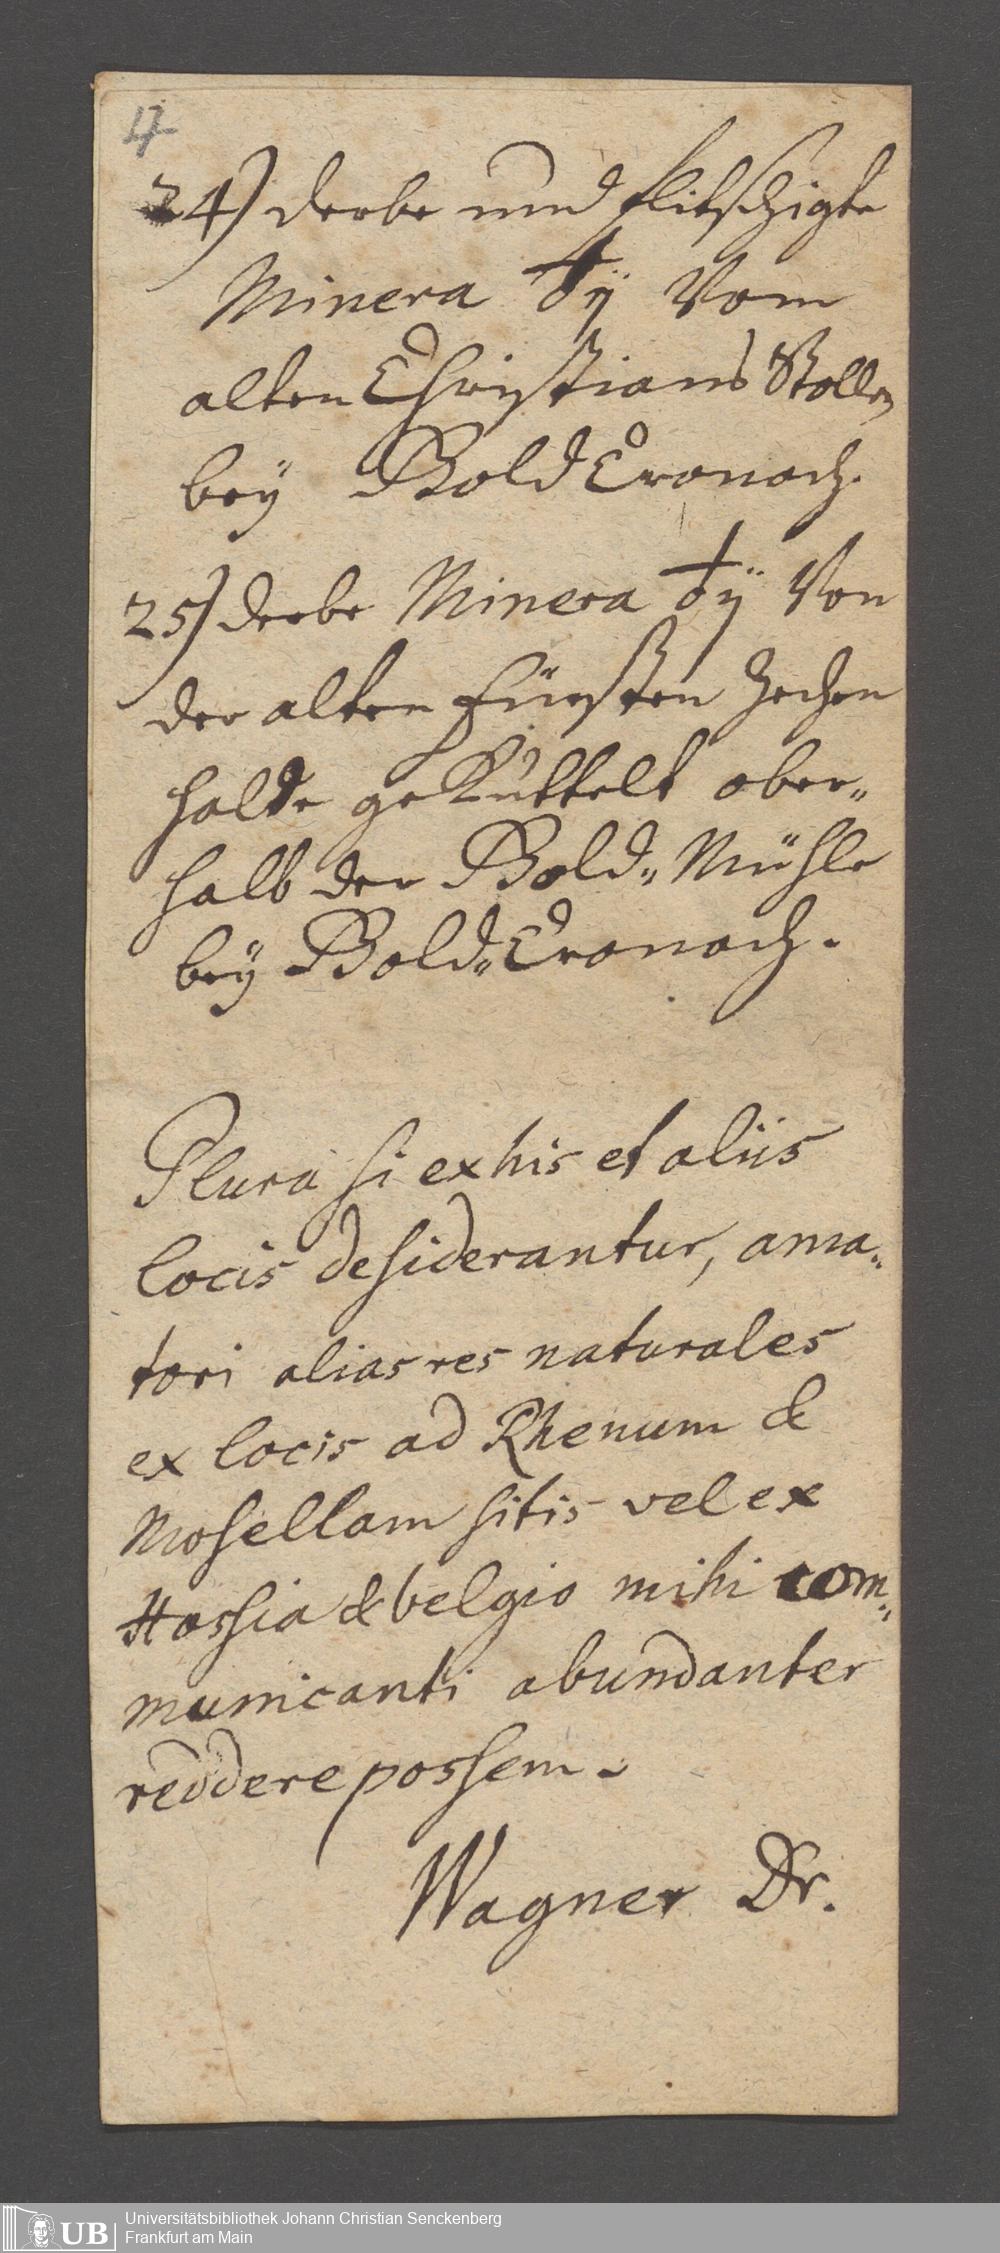 4
24) derbe und flitschigte
Minera ♁ij Vom
alten Christians Stollen
bey Gold Cronach.
25) derbe Minera ♁ij Von
der alten Fürsten Zechen
halde gekuttelt ober„
halb der Gold„ Mühle
bey Gold„Cronach.
Plura si ex his et aliis
locis desiderantur, ama„
tori alias res naturales
ex locis ad Rhenum &
Mosellam sitis vel ex
Hassia & belgio mihi com„
municanti abundanter
reddere possem.
Wagner Dr.
UB
Universitätsbibliothek Johann Christian Senckenberg
Frankfurt am Main